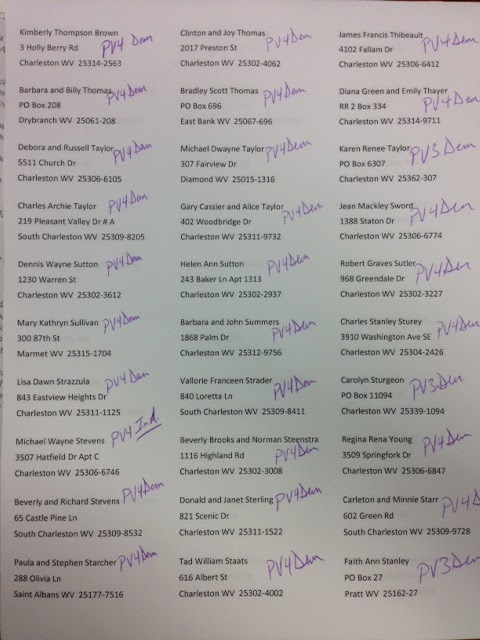 Kimberly Thompson Brown
3 Holly Berry Rd PV4 Dem
Charleston WV 25314-2563
Clinton and Joy Thomas
2017 Preston St PV4 Dem
Charleston WV 25302-4062
James Francis Thibeault
4102 Fallam Dr PV4 Dem
Charleston WV 25306-6412
Barbara and Billy Thomas PV4 Dem
PO Box 208
Drybranch WV 25061-208
Bradley Scott Thomas PV4 Dem
PO Box 696
East Bank WV 25067-696
Diana Green and Emily Thayer
RR 2 Box 334 PV4 Dem
Charleston WV 25314-9711
Debora and Russell Taylor PV4 Dem
5511 Church Dr
Charleston WV 25306-6105
Michael Dwayne Taylor PV4 Dem
307 Fairview Dr
Diamond WV 25015-1316
Karen Renee Taylor PV3 Dem
PO Box 6307
Charleston WV 25362-307
Charles Archie Taylor PV4 Dem
219 Pleasant Valley Dr # A
South Charleston WV 25309-8205
Gary Cassier and Alice Taylor PV4 Dem
402 Woodbridge Dr
Charleston WV 25311-9732
Jean Mackley Sword PV4 Dem
1388 Staton Dr
Charleston WV 25306-6774
Dennis Wayne Sutton PV4 Dem
1230 Warren St
Charleston WV 25302-3612
Helen Ann Sutton PV4 Dem
243 Baker Ln Apt 1313
Charleston WV 25302-2937
Robert Graves Sutler PV4 Dem
968 Greendale Dr
Charleston WV 25302-3227
Mary Kathryn Sullivan PV4 Dem
300 87th St
Marmet WV 25315-1704
Barbara and John Summers PV4 Dem
1868 Palm Dr
Charleston WV 25312-9756
Charles Stanley Sturey PV4 Dem
3910 Washington Ave SE
Charleston WV 25304-2426
Lisa Dawn Strazzula PV4 Dem
843 Eastview Heights Dr
Charleston WV 25311-1125
Vallorie Franceen Strader PV4 Dem
840 Loretta Ln
South Charleston WV 25309-8411
Carolyn Sturgeon PV3 Dem
PO Box 11094
Charleston WV 25339-1094
Michael Wayne Stevens PV4 Ind.
3507 Hatfield Dr Apt C
Charleston WV 25306-6746
Beverly Brooks and Norman Steenstra
1116 Highland Rd PV4 Dem
Charleston WV 25302-3008
Regina Rena Young PV4 Dem
3509 Springfork Dr
Charleston WV 25306-6847
Beverly and Richard Stevens PV4 Dem
65 Castle Pine Ln
South Charleston WV 25309-8532
Donald and Janet Sterling PV4 Dem
821 Scenic Dr
Charleston WV 25311-1522
Carleton and Minnie Starr PV4 D
602 Green Rd
South Charleston WV 25309-9728
Paula and Stephen Starcher PV4 Dem
288 Olivia Ln
Saint Albans WV 25177-7516
Tad William Staats PV4 Dem
616 Albert St
Charleston WV 25302-4002
Faith Ann Stanley PV3 Dem
PO Box 27
Pratt WV 25162-27